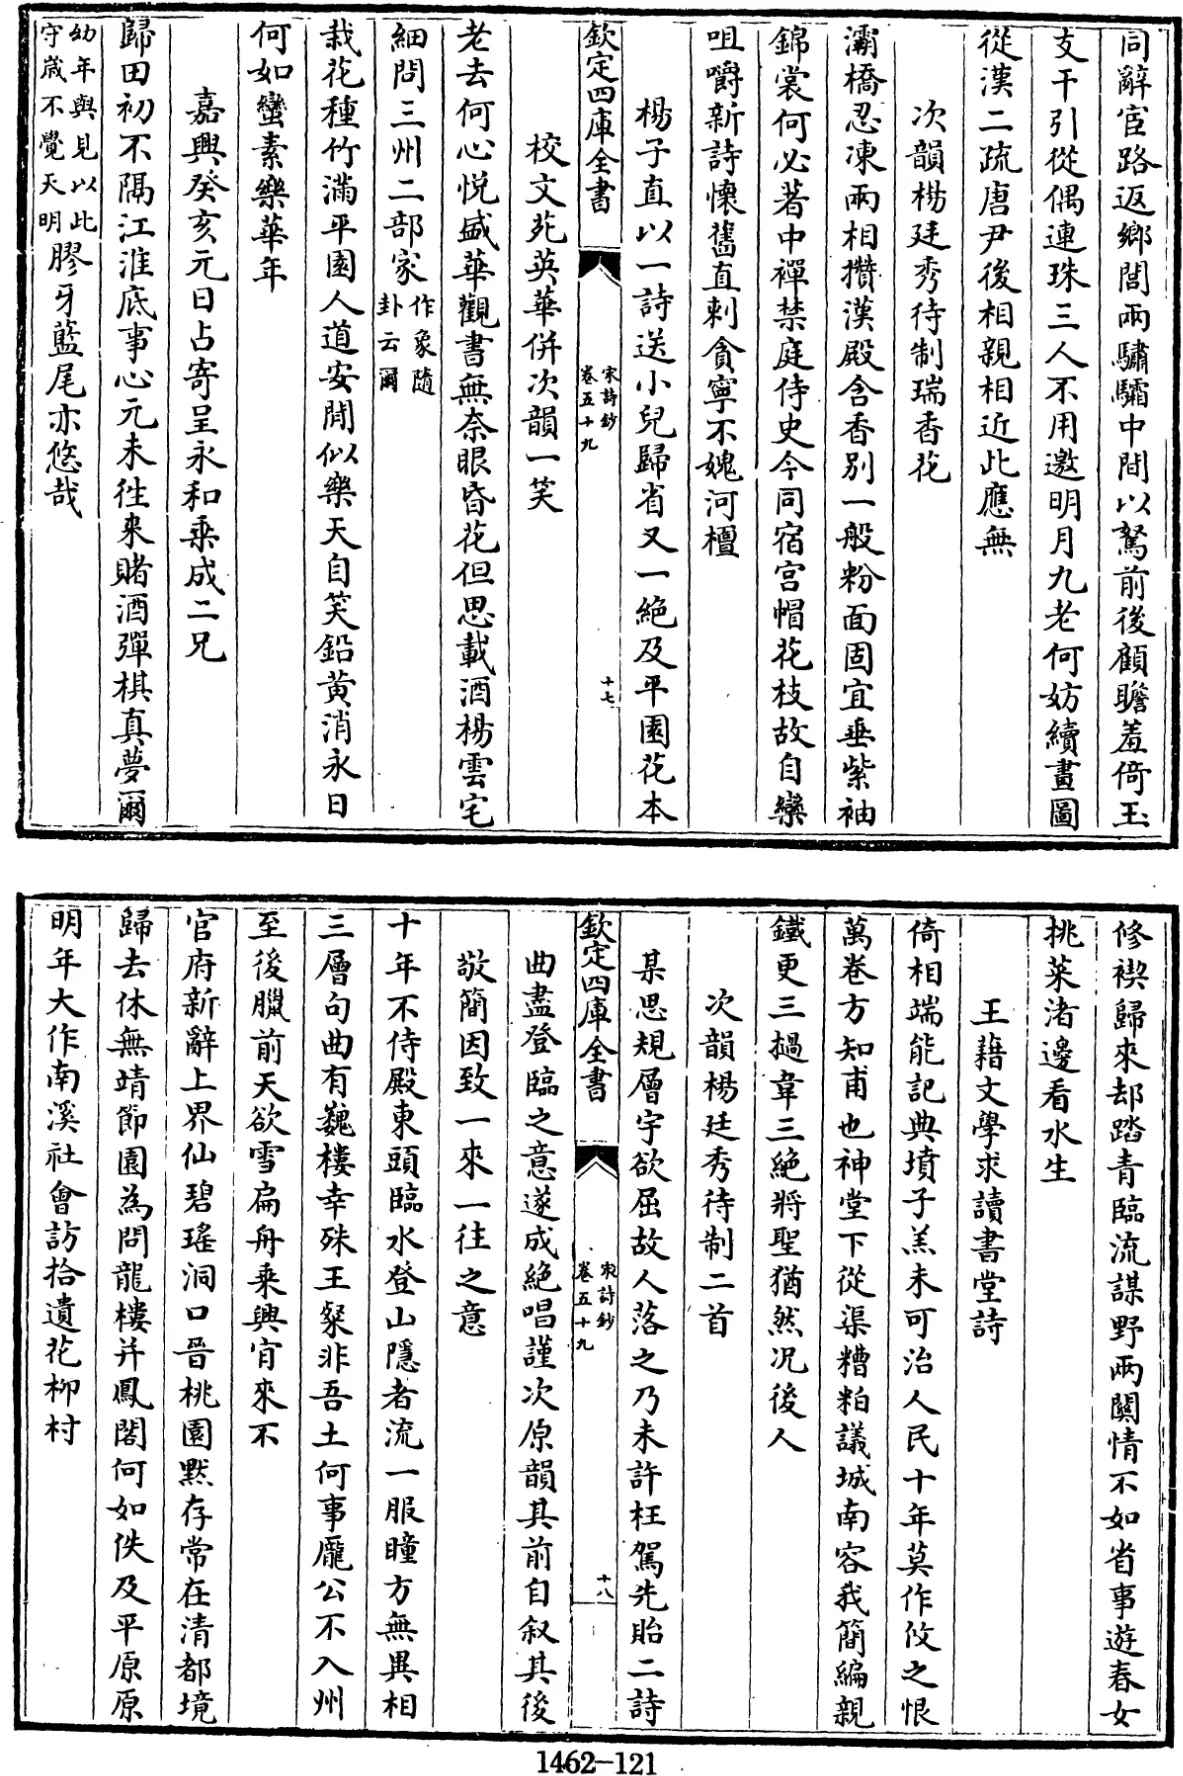 同辭宦路返鄉閭兩驌驦中間以駑前後顧瞻羞倚玉
支干引從偶連珠三人不用邀明月九老何妨續畫圖
從漢二疏唐尹後相親相近此應無
次韻楊廷秀待制瑞香花
灞橋忍凍兩相攢漢殿含香别一般粉面固宜垂紫袖
錦裳何必著中襌禁庭侍史今同宿宫帽花枝故自欒
咀嚼新詩懷舊直刺貪寧不媿河檀
楊子直以一詩送小兒歸省又一絶及平園花本
欽定四庫全書
宋詩鈔
卷五十九
十七
校文苑英華併次韻一笑
老去何心悦盛華觀書無奈眼昏花但思載酒楊雲宅
細問三州二部家作象隨
卦云爾
栽花種竹滿平園人道安閒似樂天自笑鉛黄消永日
何如蠻素樂華年
嘉興癸亥元日占寄呈永和乘成二兄
歸田初不隔江淮底事心元未往來賭酒彈棋真夢爾
幼年與兄以此
守歲不覺天明膠牙藍尾亦悠哉
修禊歸來却踏青臨流謀野兩關情不如省事遊春女
挑菜渚邊看水生
王藉文學求讀書堂詩
倚相端能記典墳子羔未可治人民十年莫作攸之恨
萬卷方知甫也神堂下從渠糟粕議城南容我簡編親
鐵更三撾韋三絶將聖猶然况後人
次韻楊廷秀待制二首
某思規層宇欲屈故人落之乃未許枉駕先貽二詩
欽定四庫全書
宋詩鈔
卷五十九
十八
曲盡登臨之意遂成絶唱謹次原韻其前自叙其後
敬簡因致一來一往之意
十年不侍殿東頭臨水登山隱者流一服瞳方無異相
三層句曲有巍樓幸殊王粲非吾土何事龎公不入州
至後臘前天欲雪扁舟乘興肯來不
官府新辭上界仙碧瑤洞口晉桃園默存常在清都境
歸去休無靖節園為問龍樓并鳳閣何如佚及平原原
明年大作南溪社會訪拾遺花柳村
1462-121